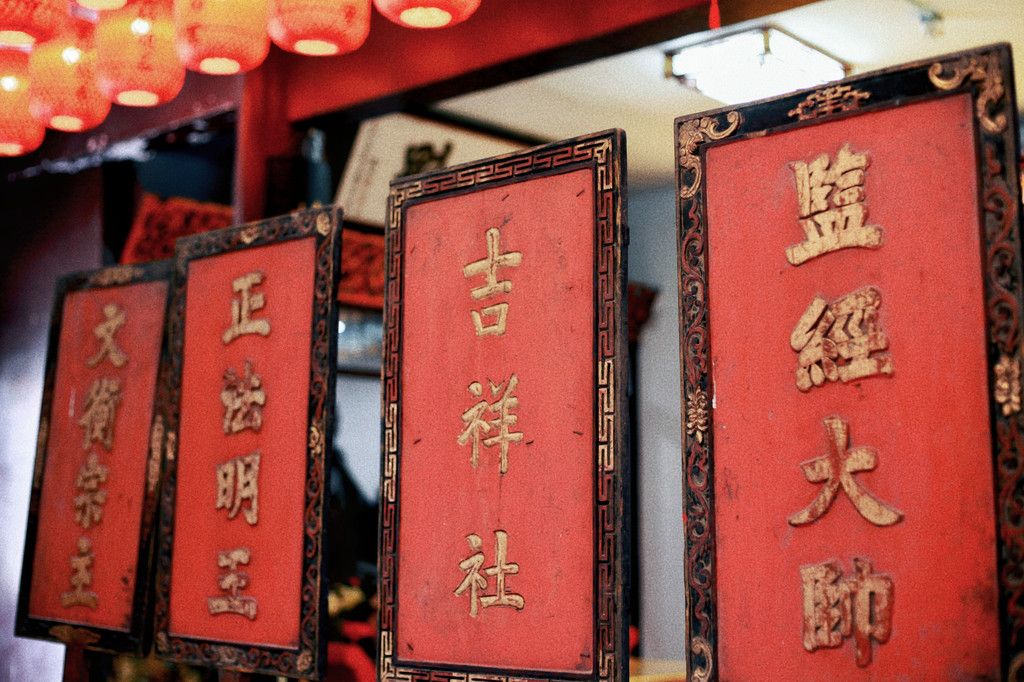 監經大帥
吉祥社
正法明王
文衡宗主